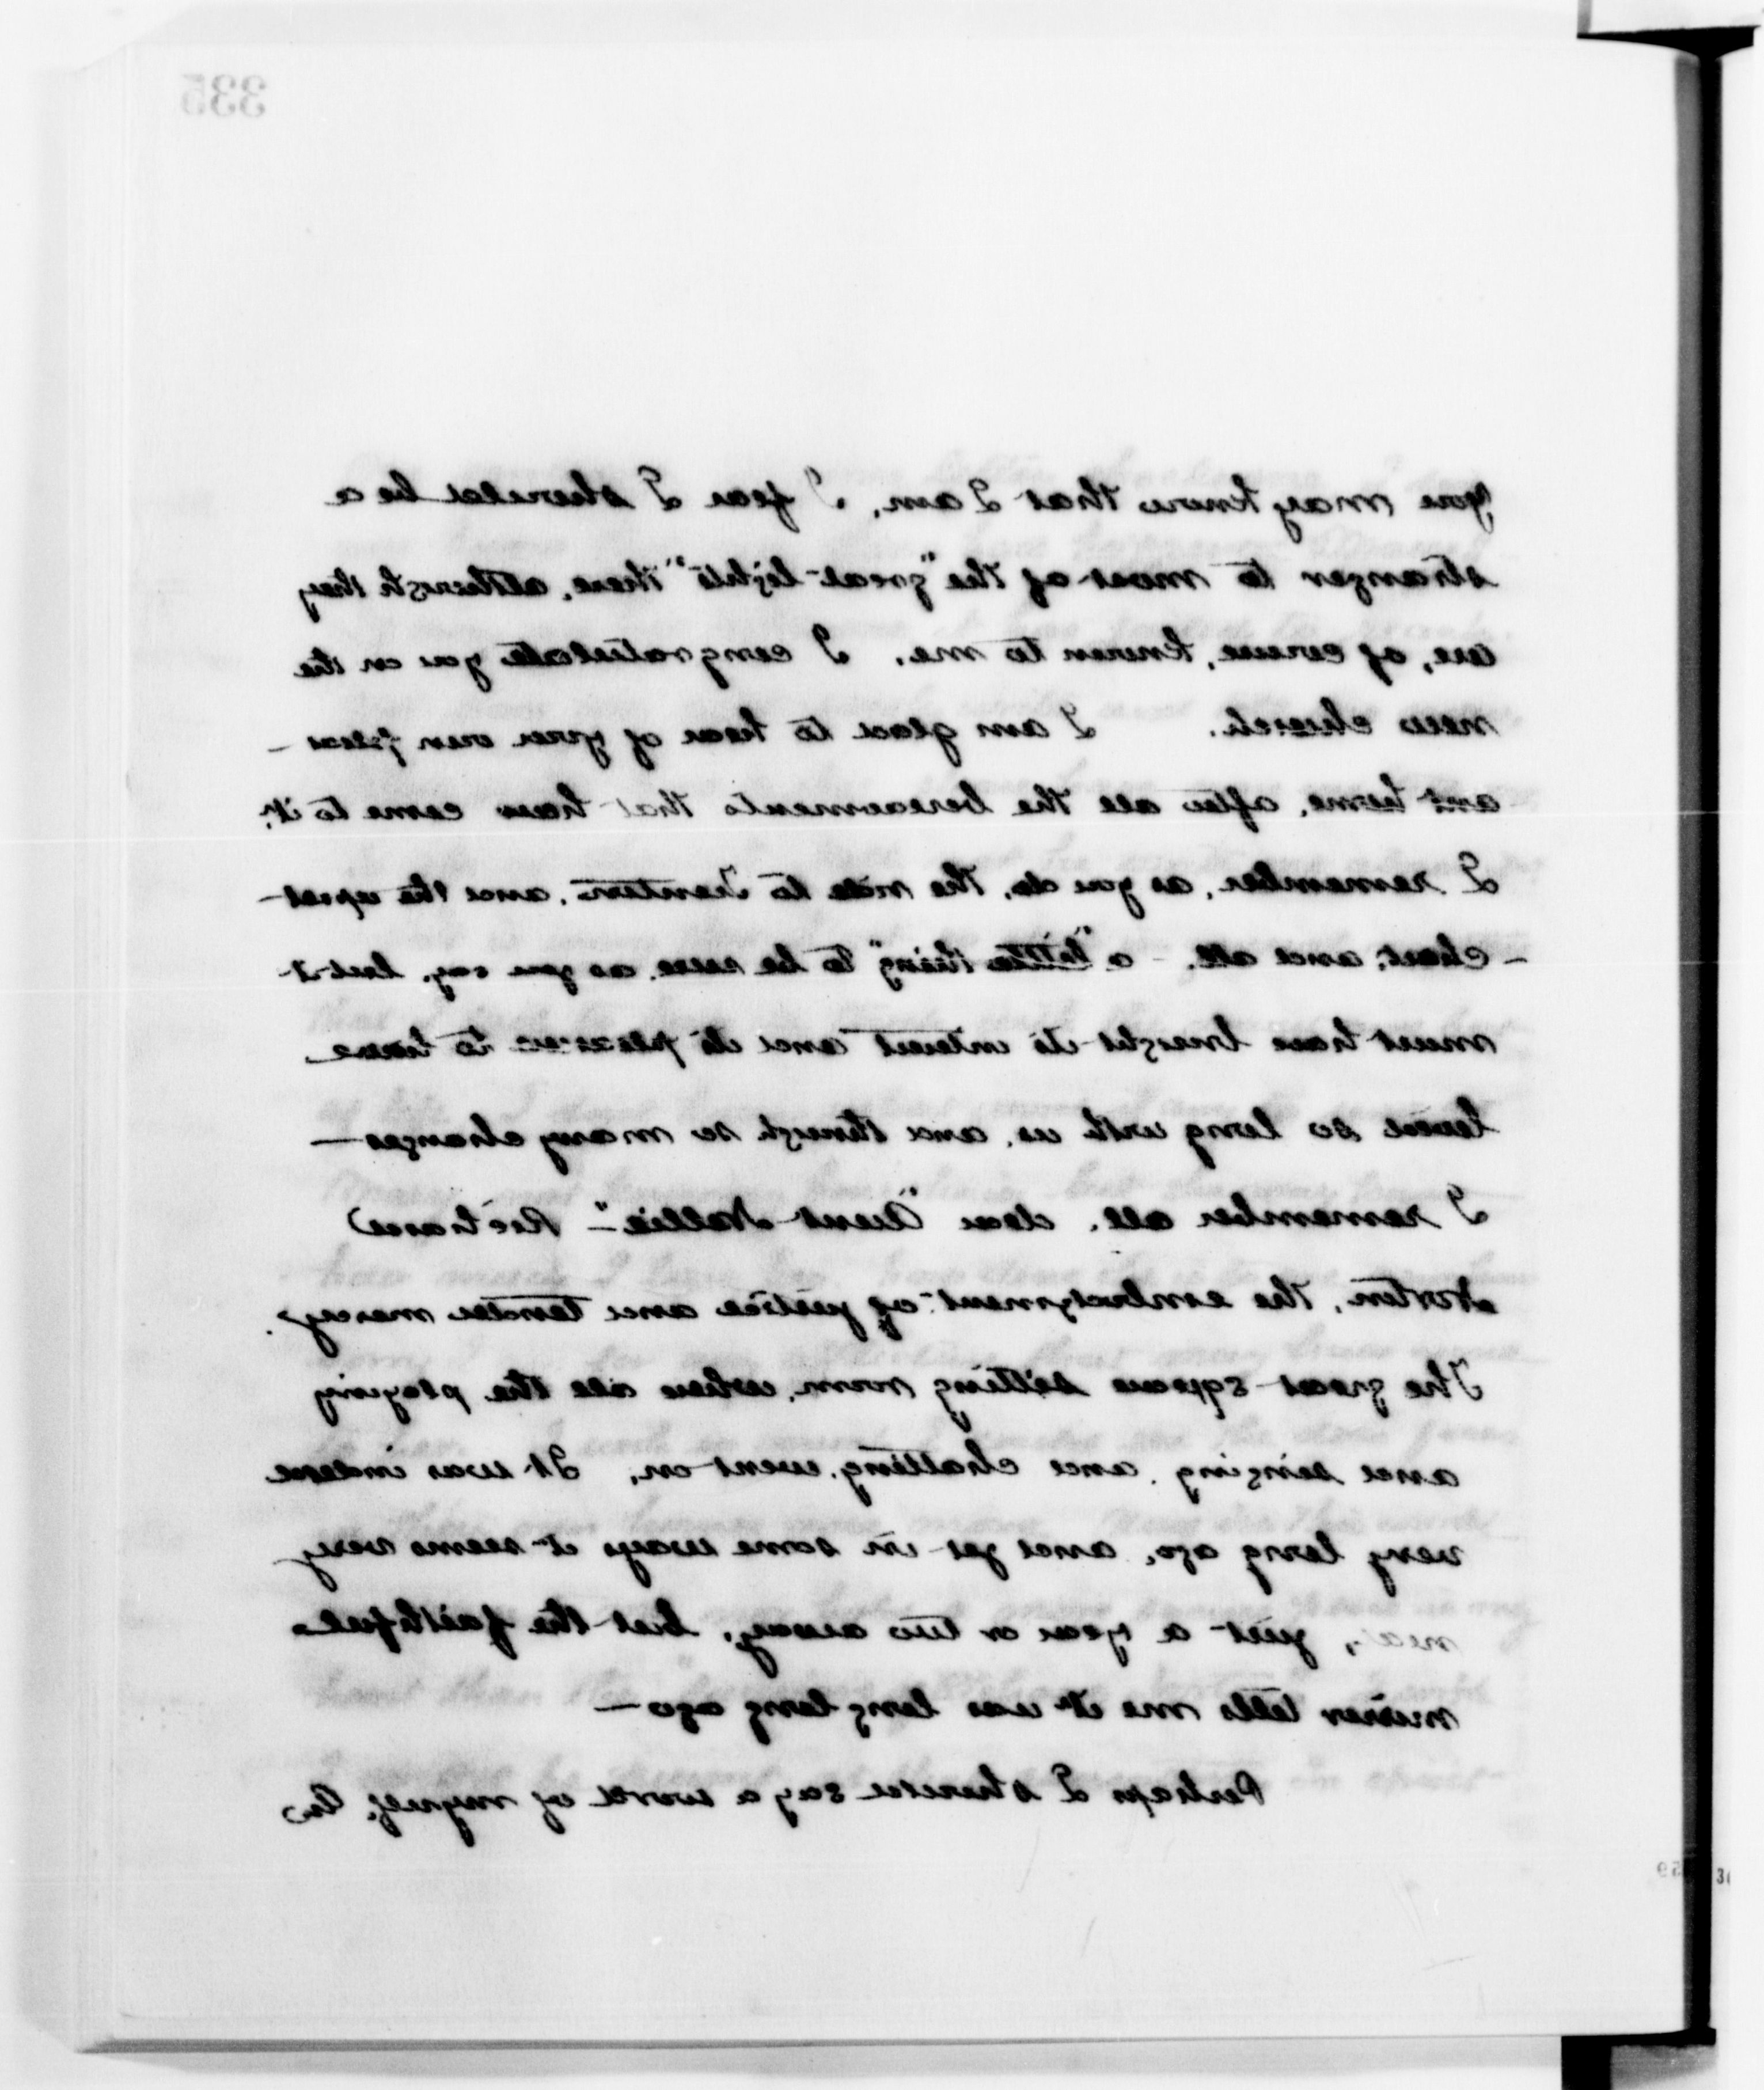 335
you may know that I am. I fear I should be a
stranger to most of the "great lights" there, although they
are, of course, known to me. I congratulate you on the
new church. I am glad to hear of your own pleas-
ant home, after all the bereavements that have come to it.
I remember, as you do, the ride to Trenton, and the upset
- chair, and all. - a "little thing" to be sure, as you say, but it
must have brought its interest and its pleasure to have
lived so long with us, and through so many changes —
I remember all, dear "Aunt Nallie" - Richard
Norton, the embodyment of justice and tender mercy.
The great square sitting room, where all the playing
and singing, and chatting, went on. It was indeed
very long ago, and yet in some ways it seems very
near, just a year or two away, but the faithful
mirror tells me it was long long ago —
Perhaps I should say a word of myself.